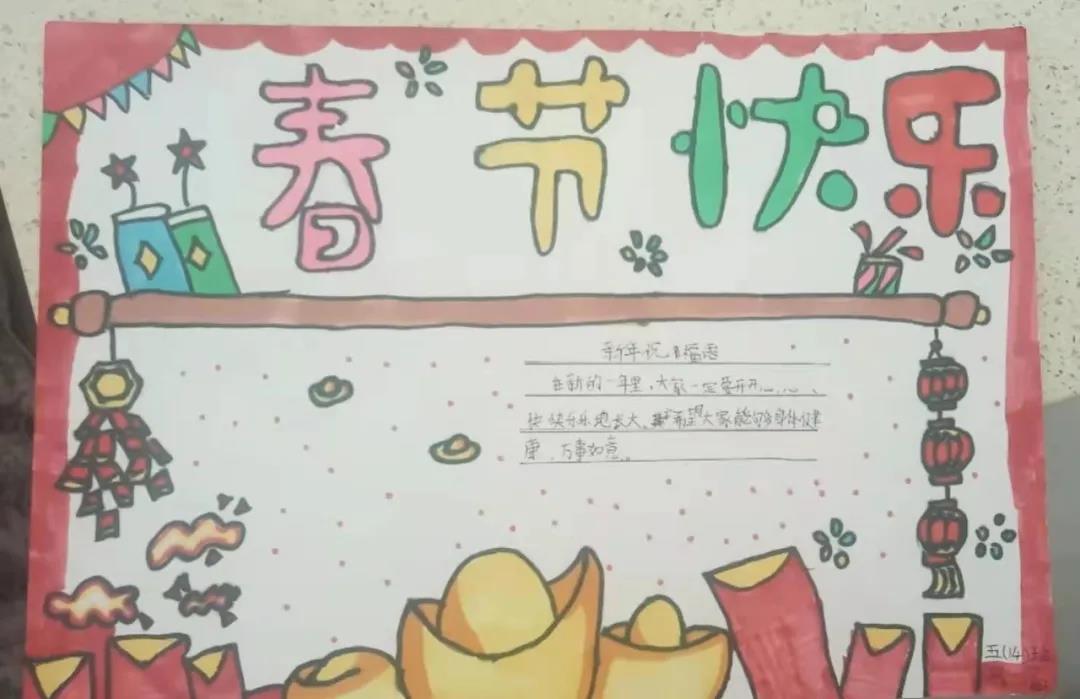 春节快乐
新年祝福语
在新的一年里，大家一定要开开心心、
快快乐乐地长大、希望大家能够身体健
康、万事如意。
五(14)